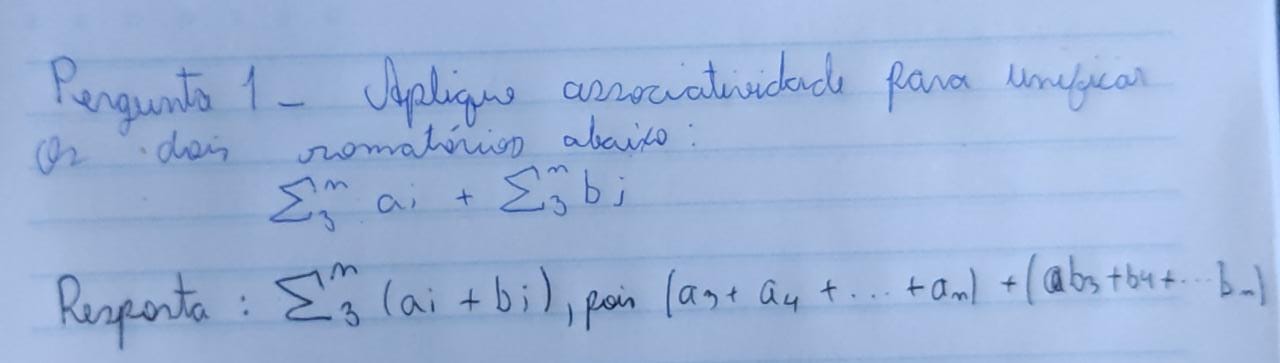 Pergunta 1 - Aplique associatividade para unificar
os dois somatórios abaixo:
∑₃ⁿ ai + ∑₃ⁿ bi
Resposta : ∑₃ⁿ (ai + bi), pois (a₃ + a₄ + ... + aₙ) + (b₃ + b₄ + ... bₙ)